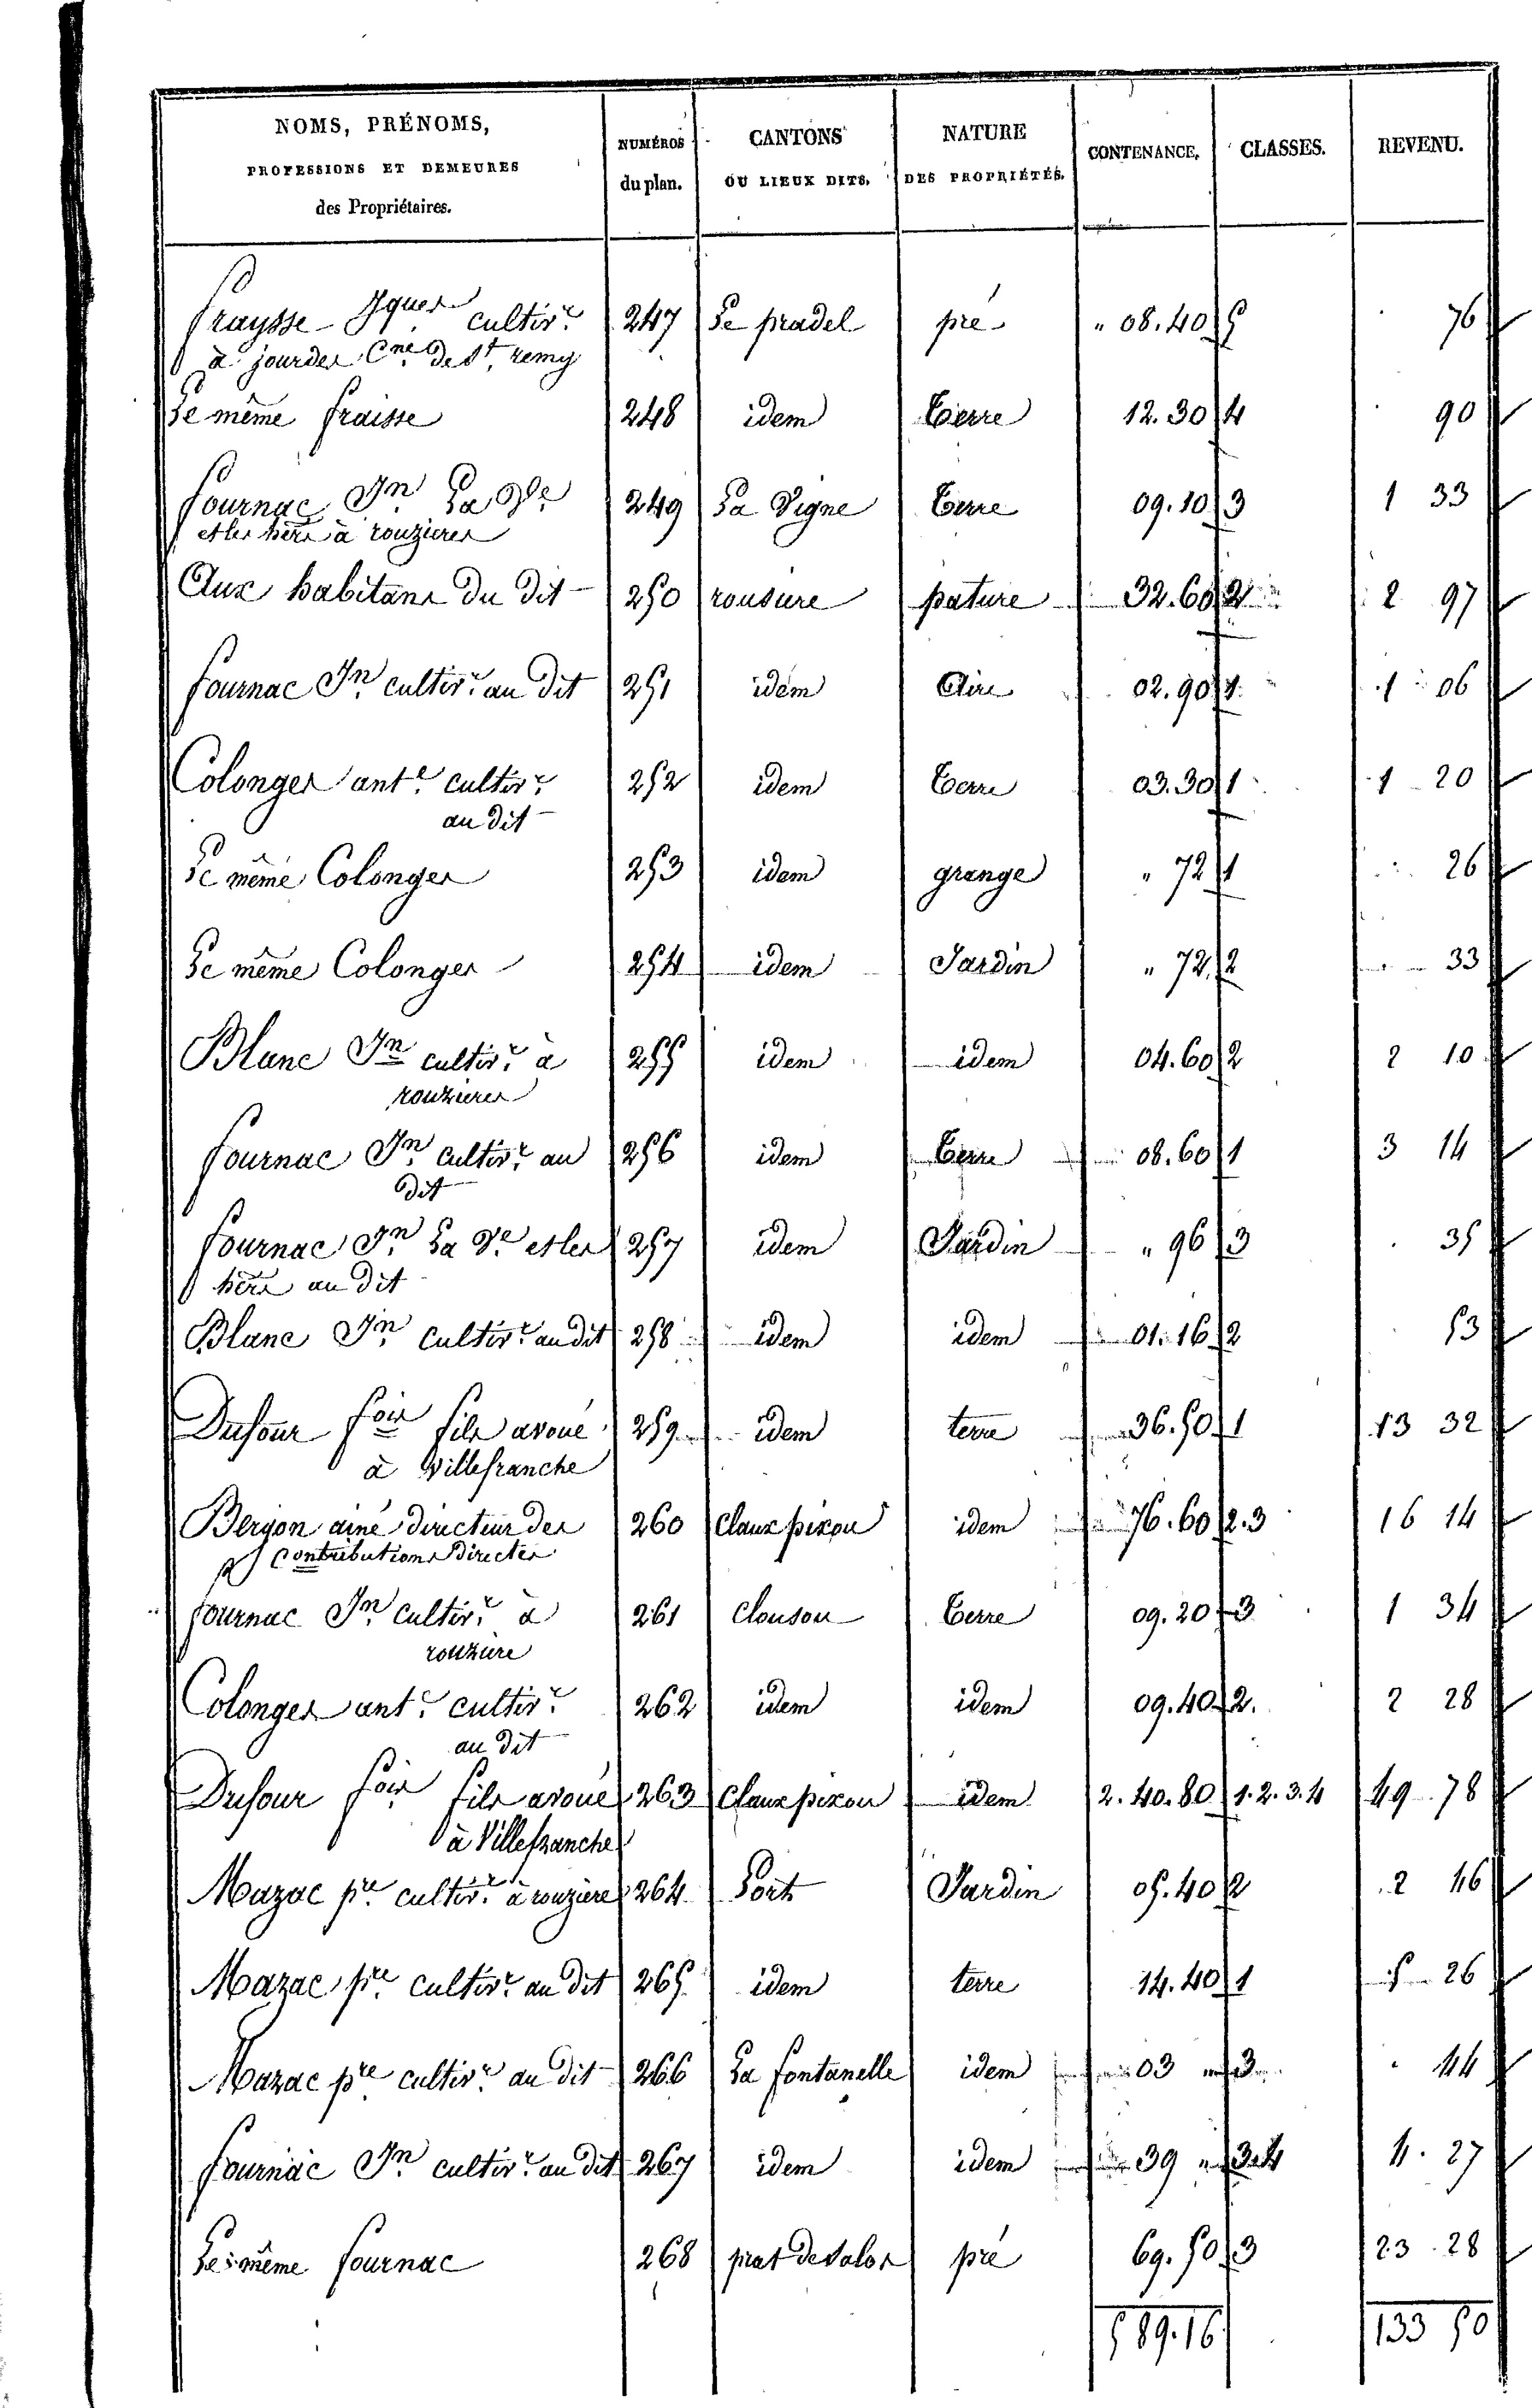 NOMS, PRÉNOMS, PROFESSIONS ET DEMEURES des Propriétaires. | NUMÉROS du plan. | CANTONS OU LIEUX DITS. | NATURE DES PROPRIÉTÉS. | CONTENANCE. | CLASSES. | REVENU.
fraysse Jques cultivr 247 Le pradel pré " 08.40 5 76
à jourdes Cne de St remy
Le même fraisse 248 idem Terre 12.30 4 90
fournac Jn La Ve 249 La Vigne Terre 09.10 3 1 33
et les hers à rouzieres
Aux habitans du dit 250 rousiere pature 32.60 2 2 97
fournac Jn cultivr au dit 251 idem Aire 02.90 1 1 06
Colonges ante cultivr 252 idem Terre 03.30 1 1 20
au dit
Le même Colonges 253 idem grange " 72 1 26
Le même Colonges 254 idem Jardin " 72 2 33
Blanc Jn cultivr à 255 idem idem 04.60 2 2 10
rouzieres
fournac Jn cultivr au 256 idem Terre 08.60 1 3 14
dit
fournac Jn La Ve et les 257 idem Jardin " 96 3 35
hers au dit
Blanc Jn cultivr au dit 258 idem idem 01.16 2 53
Dufour fois fils avoué 259 idem terre 36.50 1 13 32
à Villefranche
Bergon ainé directeur des 260 Claux pixou idem 76.60 2.3 16 14
Contributions Directes
fournac Jn cultivr à 261 Clousou Terre 09.20 3 1 34
rouziere
Colonges ante cultivr 262 idem idem 09.40 2. 2 28
au dit
Dufour fois fils avoué 263 Claux pixou idem 2.40.80 1.2.3.4 49 78
à Villefranche
Mazac pre cultivr à rouziere 264 Port Jardin 05.40 2 2 46
Mazac pre cultivr au dit 265 idem terre 14.40 1 5 26
Mazac pre cultivr au dit 266 La fontanelle idem 03 " 3 44
fournac Jn cultivr au dit 267 idem idem 39 " 3.4 4. 27
Le même fournac 268 prat de valos pré 69.50 3 23 28
5 89.16 133 50